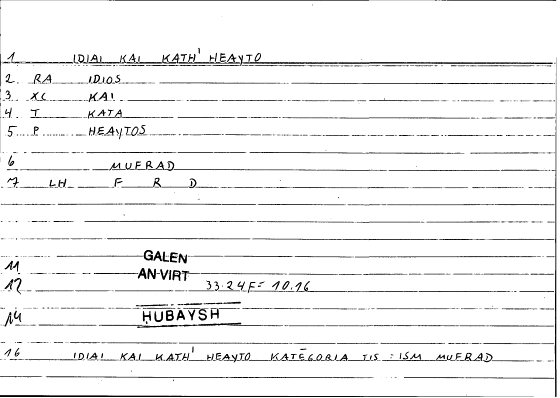 1 IDIAI KAI KATH' HEAYTO
2 RA IDIOS
3 XC KAI
4 T KATA
5 P HEAYTOS
6 MUFRAD
7 LH F R D
11 GALEN
12 AN-VIRT 33.24F = 10.16
14 ḤUBAYSH
16 IDIAI KAI KATH' HEAYTO KATĒGORIA TIS : ISM MUFRAD